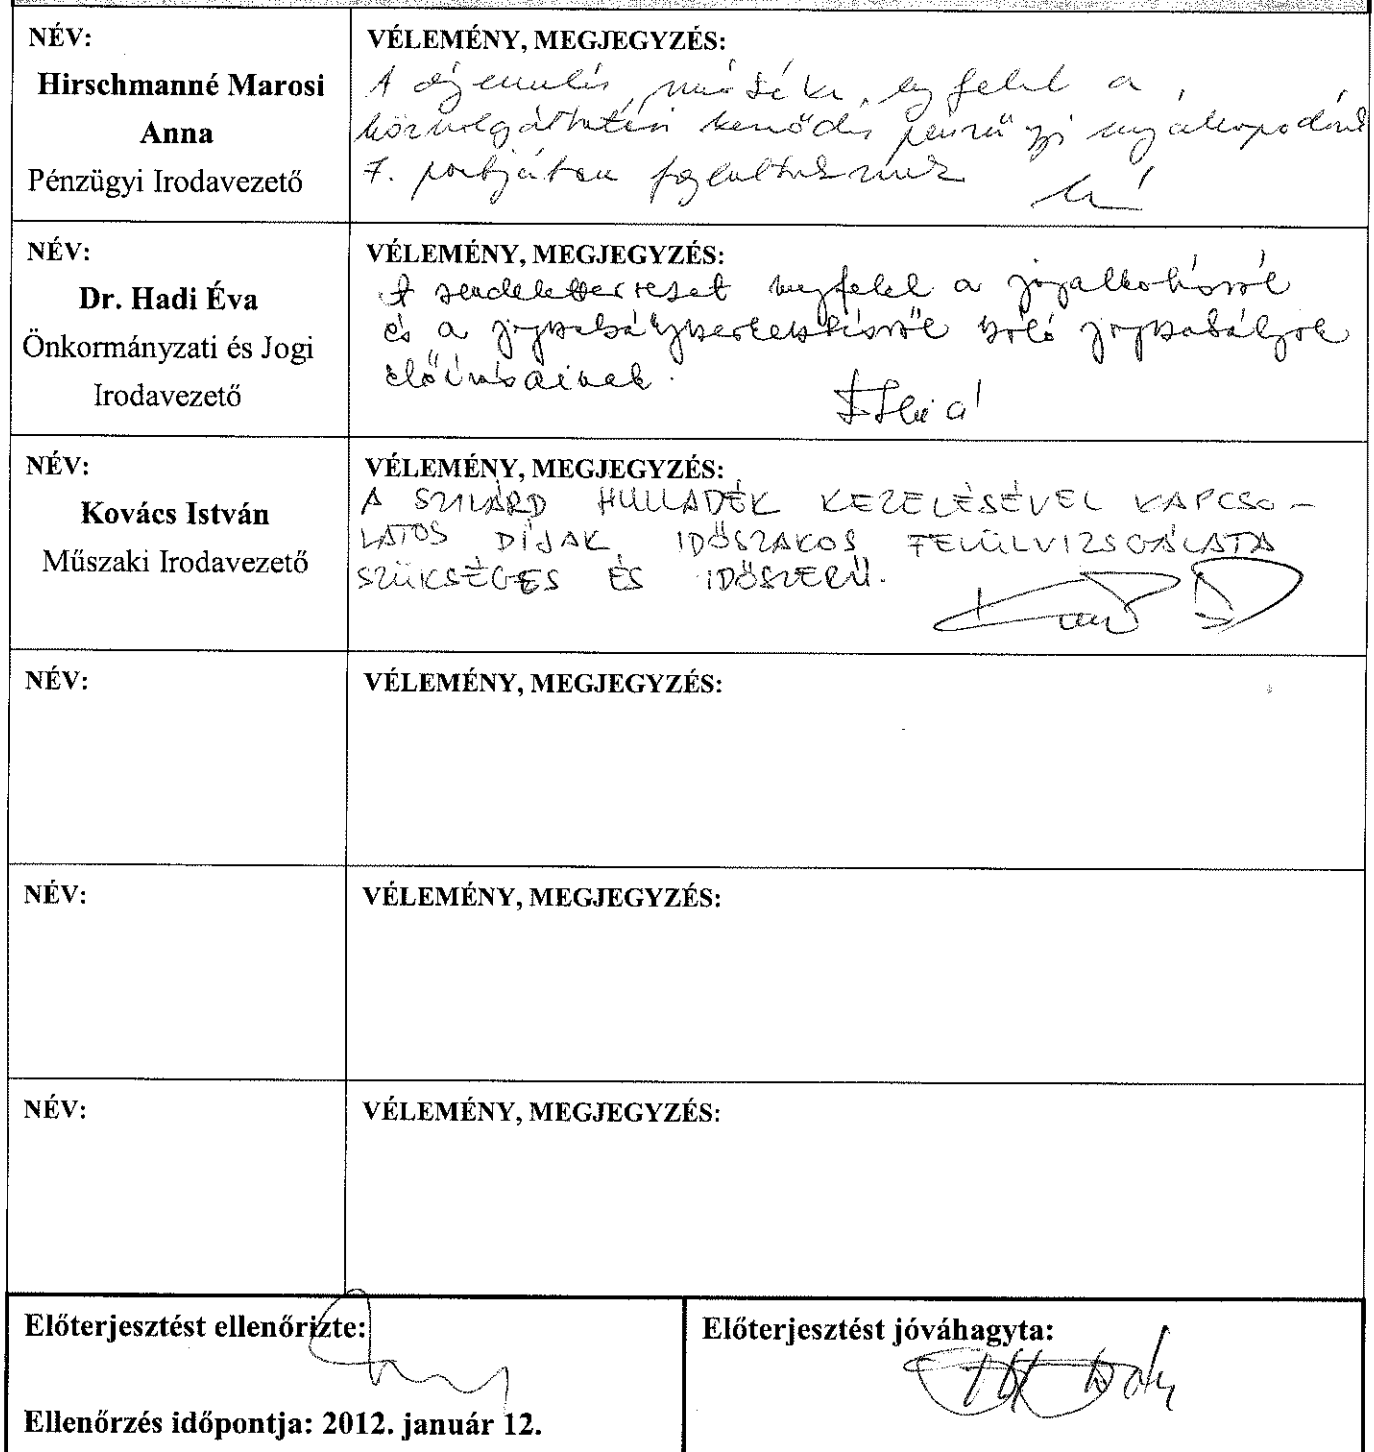 NÉV:
Hirschmanné Marosi
Anna
Pénzügyi Irodavezető
VÉLEMÉNY, MEGJEGYZÉS:
A díjemelés mértéke, megfelel a
közszolgáltatási szerződés pénzügyi megállapodásának
7. pontjában foglaltaknak
NÉV:
Dr. Hadi Éva
Önkormányzati és Jogi
Irodavezető
VÉLEMÉNY, MEGJEGYZÉS:
A rendelettervezet megfelel a jogalkotásról
és a jogszabályszerkesztésről szóló jogszabályok
előírásainak.
NÉV:
Kovács István
Műszaki Irodavezető
VÉLEMÉNY, MEGJEGYZÉS:
A SZILÁRD HULLADÉK KEZELÉSÉVEL KAPCSO-
LATOS DÍJAK IDŐSZAKOS FELÜLVIZSGÁLATA
SZÜKSÉGES ÉS IDŐSZERŰ.
NÉV:
VÉLEMÉNY, MEGJEGYZÉS:
NÉV:
VÉLEMÉNY, MEGJEGYZÉS:
NÉV:
VÉLEMÉNY, MEGJEGYZÉS:
Előterjesztést ellenőrizte:
Ellenőrzés időpontja: 2012. január 12.
Előterjesztést jóváhagyta: